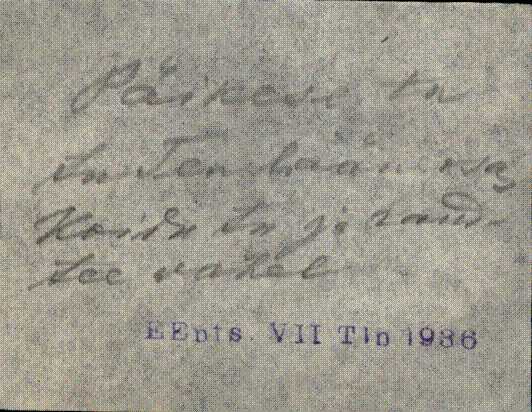 Päikese tn
Koidu tn ja raud-
tee vahel
EEnts. VII Tln 1936